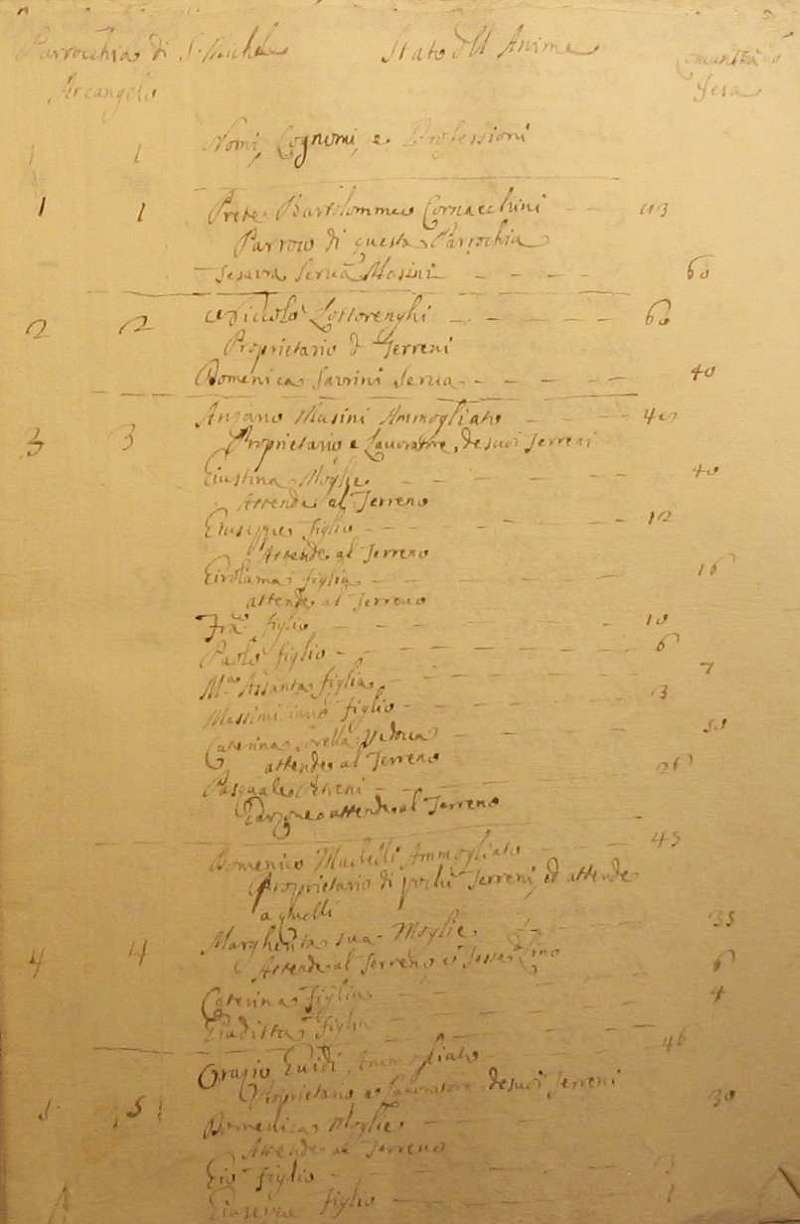 Parrocchia di S. Michele
Arcangelo
Stato dell Anime
Comunità
Nomi, Cognomi, e Professioni
1 1
1 1 Prete Bartolommeo Cornacchini 43
Parroco di questa Parrochia
Serva Masini 60
2 2 Lottorenghi 60
Proprietario di Terreni
Domenica Serva 40
3 3 Ansano Masini Ammogliato 40
Proprietario e Lavoratore de suoi Terreni
Giustina Moglie 40
Attende al Terreno
Giuseppe figlio 12
Attende al Terreno
Girolama figlia 16
attende al Terreno
figlio 10
Paolo figlio 6
M.a Assunta figlia 7
Massimiliano figlio 3
Caterina sorella Vedova 50
attende al Terreno
Pasquale 26
Garzone attende al Terreno
4 4 Domenico Ammogliato 45
Proprietario di pochi Terreni, ed attende
a quelli
Margherita sua Moglie 35
Attende al Terreno e
Caterina figlia 6
Giuditta figlia 4
5 5 Orazio Guidi Ammogliato 46
Proprietario e Lavoratore de suoi Terreni
Domenica Moglie 30
Attende al Terreno
Gio. figlio 3
figlio 1